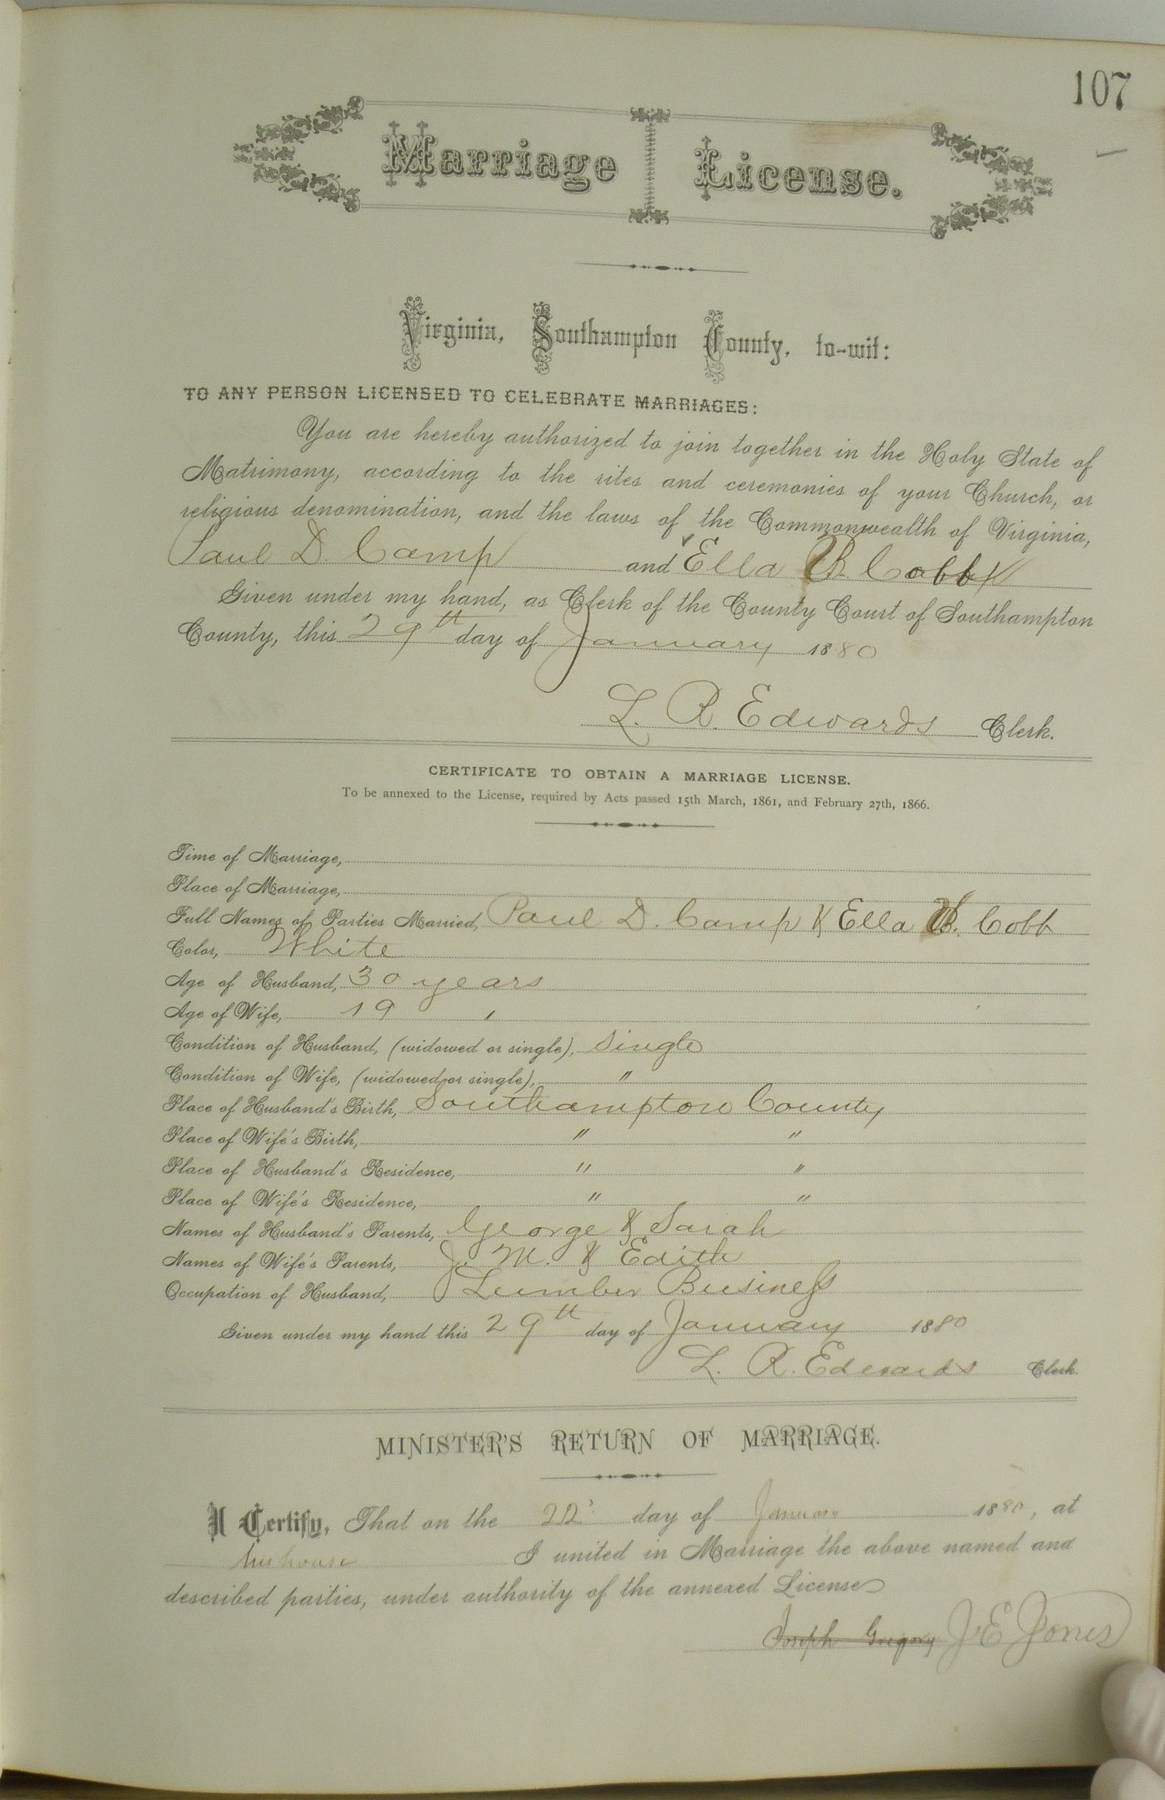 107
Marriage License.
Virginia, Southampton County, to-wit:
TO ANY PERSON LICENSED TO CELEBRATE MARRIAGES:
You are hereby authorized to join together in the Holy State of
Matrimony, according to the rites and ceremonies of your Church, or
religious denomination, and the laws of the Commonwealth of Virginia,
Paul D. Camp and Ella B. Cobb
Given under my hand, as Clerk of the County Court of Southampton
County, this 29th day of January 1880
L. R. Edwards Clerk.
CERTIFICATE TO OBTAIN A MARRIAGE LICENSE.
To be annexed to the License, required by Acts passed 15th March, 1861, and February 27th, 1866.
Time of Marriage,
Place of Marriage,
Full Names of Parties Married, Paul D. Camp & Ella B. Cobb
Color, White
Age of Husband, 30 years
Age of Wife, 19 "
Condition of Husband, (widowed or single), Single
Condition of Wife, (widowed or single), "
Place of Husband's Birth, Southampton County
Place of Wife's Birth, " "
Place of Husband's Residence, " "
Place of Wife's Residence, " "
Names of Husband's Parents, George & Sarah
Names of Wife's Parents, J. M. & Edith
Occupation of Husband, Lumber Business
Given under my hand this 29th day of January 1880
L. R. Edwards Clerk.
MINISTER'S RETURN OF MARRIAGE.
I Certify, That on the 22 day of January 1880, at
his house I united in Marriage the above named and
described parties, under authority of the annexed License
Joseph Gregory J E Jones